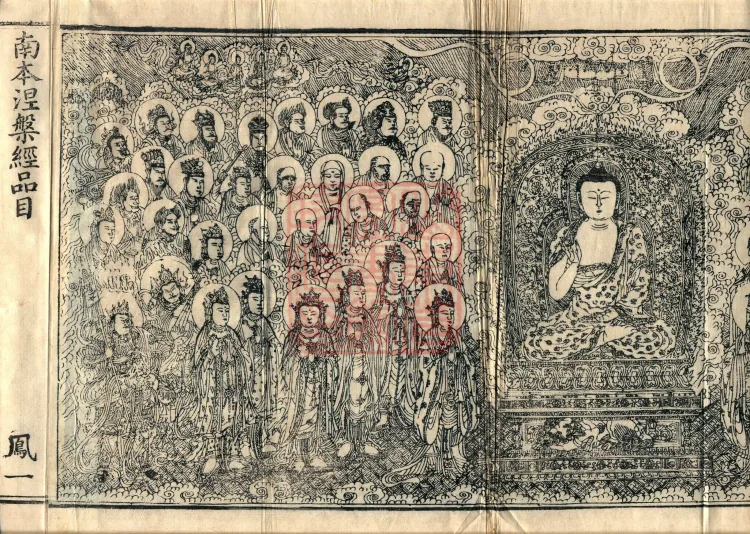 南本涅槃經品目
鳳一